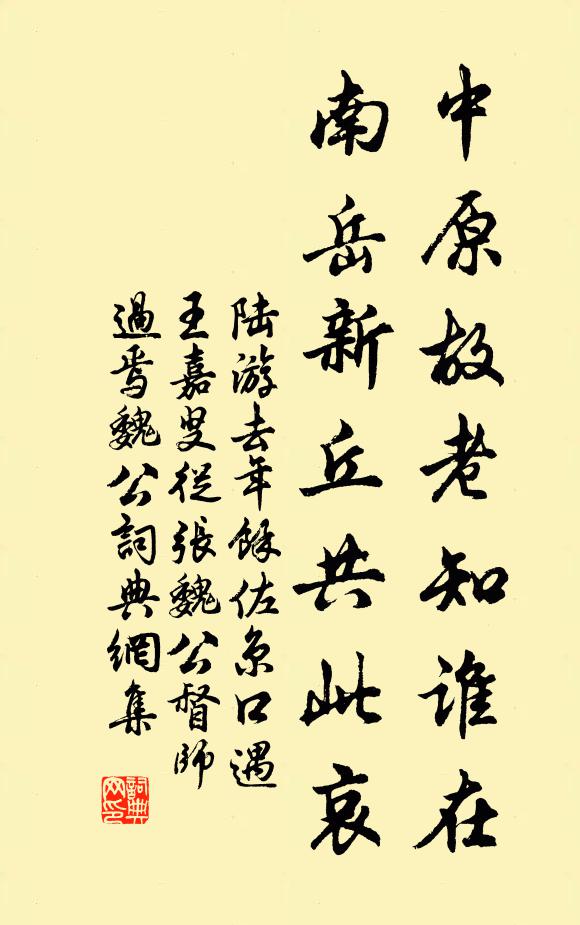 中原故老知谁在
南岳新丘共此哀
陆游去年馀佐京口遇
王嘉叟從張魏公督師
過焉魏公詞典網集
詞典
网印